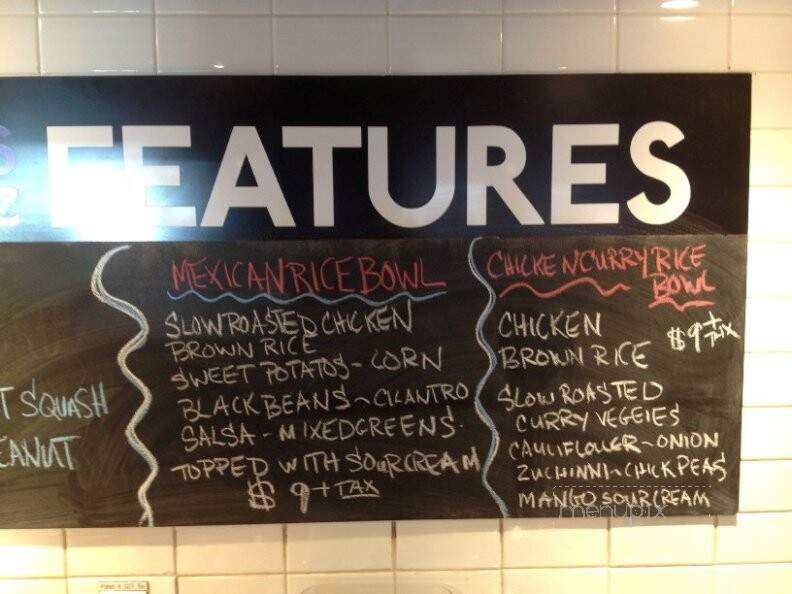 FEATURES
T SQUASH
EANUT
MEXICAN RICE BOWL
SLOW ROASTED CHICKEN
BROWN RICE
SWEET POTATOS - CORN
BLACK BEANS ~ CILANTRO
SALSA - MIXED GREENS.
TOPPED WITH SOUR CREAM
$ 9 + TAX
CHICKEN CURRY RICE
BOWL
$9 + TAX
CHICKEN
BROWN RICE
SLOW ROASTED
CURRY VEGEIES
CAULIFLOWER ~ ONION
ZUCHINNI ~ CHICK PEAS
MANGO SOUR CREAM
menupix